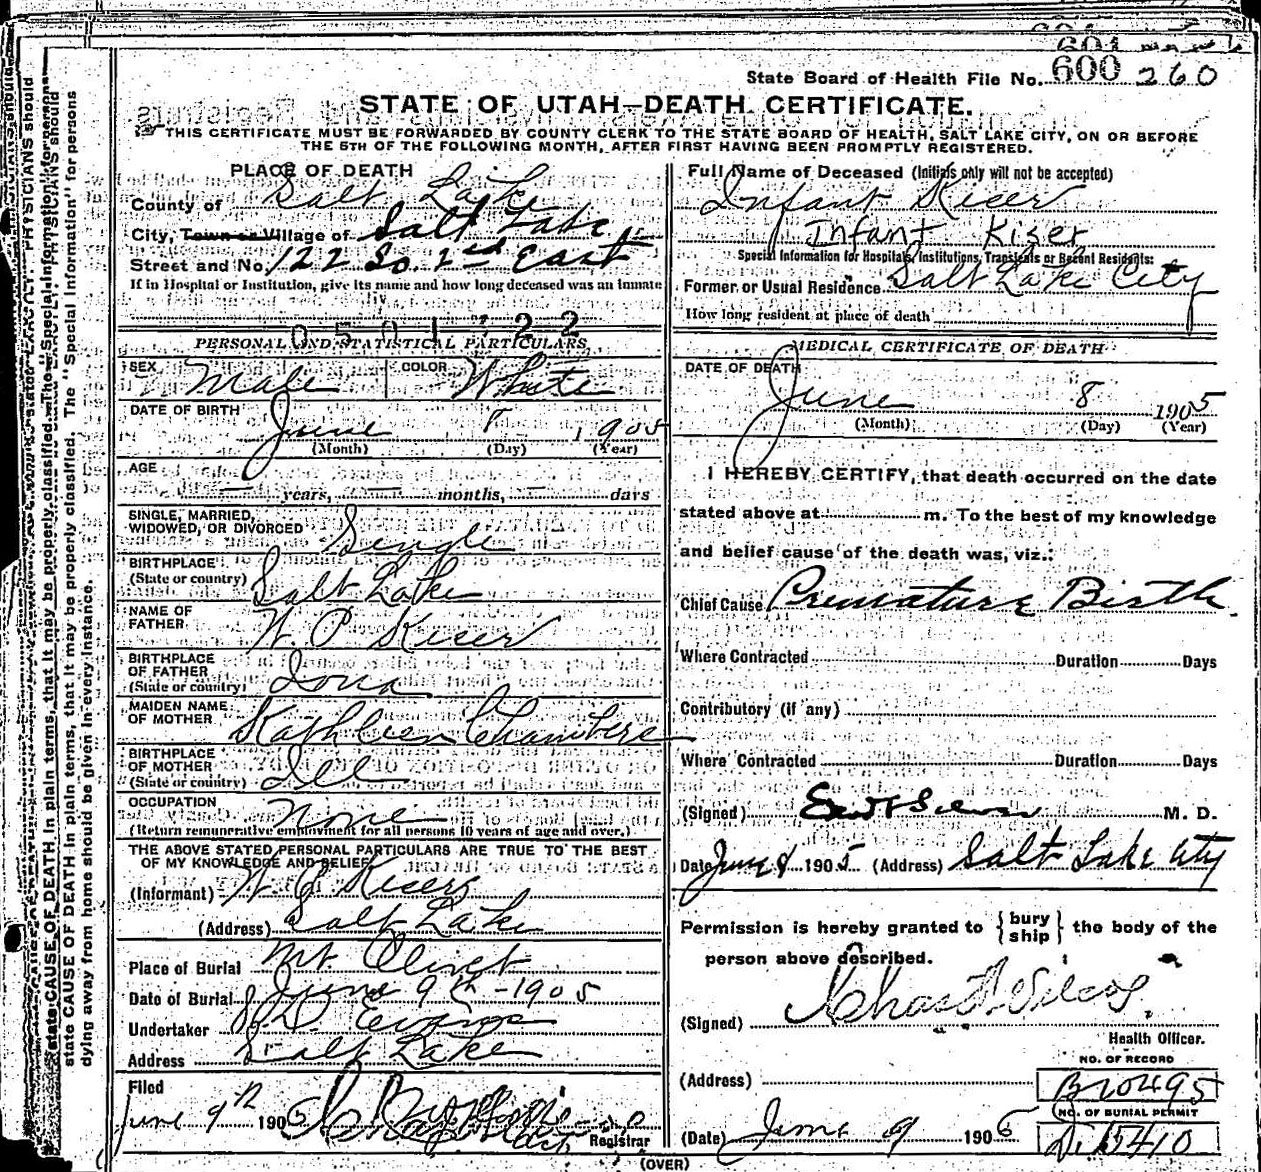 State Board of Health File No. 600 260
STATE OF UTAH—DEATH CERTIFICATE.
THIS CERTIFICATE MUST BE FORWARDED BY COUNTY CLERK TO THE STATE BOARD OF HEALTH, SALT LAKE CITY, ON OR BEFORE
THE 5TH OF THE FOLLOWING MONTH, AFTER FIRST HAVING BEEN PROMPTLY REGISTERED.
PLACE OF DEATH
County of Salt Lake
City, Town or Village of Salt Lake
Street and No. 122 So. 2nd East
If in Hospital or Institution, give its name and how long deceased was an inmate
PERSONAL AND STATISTICAL PARTICULARS
SEX Male COLOR White
DATE OF BIRTH June 8 1905
(Month) (Day) (Year)
AGE
— years, — months, — days
SINGLE, MARRIED,
WIDOWED, OR DIVORCED Single
BIRTHPLACE
(State or country) Salt Lake
NAME OF
FATHER W. P. Kiser
BIRTHPLACE
OF FATHER
(State or country) Iowa
MAIDEN NAME
OF MOTHER Kathleen Chambers
BIRTHPLACE
OF MOTHER
(State or country) Ill
OCCUPATION None
(Return remunerative employment for all persons 10 years of age and over.)
THE ABOVE STATED PERSONAL PARTICULARS ARE TRUE TO THE BEST
OF MY KNOWLEDGE AND BELIEF
(Informant) W P Kiser
(Address) Salt Lake
Place of Burial Mt. Olivet
Date of Burial June 9th - 1905
Undertaker Evans
Address Salt Lake
Filed
June 9th 1905 Registrar
Full Name of Deceased (Initials only will not be accepted)
Infant Kiser
Infant Kiser
Special Information for Hospitals, Institutions, Transients or Recent Residents:
Former or Usual Residence Salt Lake City
How long resident at place of death
MEDICAL CERTIFICATE OF DEATH
DATE OF DEATH
June 8 1905
(Month) (Day) (Year)
I HEREBY CERTIFY, that death occurred on the date
stated above at m. To the best of my knowledge
and belief cause of the death was, viz.:
Chief Cause Premature Birth.
Where Contracted Duration Days
Contributory (if any)
Where Contracted Duration Days
(Signed) M. D.
Date June 8 1905 (Address) Salt Lake City
Permission is hereby granted to { bury ship } the body of the
person above described.
(Signed) Chas
Health Officer.
NO. OF RECORD
(Address) B20495
NO. OF BURIAL PERMIT
(Date) June 9 1905 D.15410
(OVER)
state CAUSE OF DEATH in plain terms, that it may be properly classified. The "Special Information" for persons
dying away from home should be given in every instance.